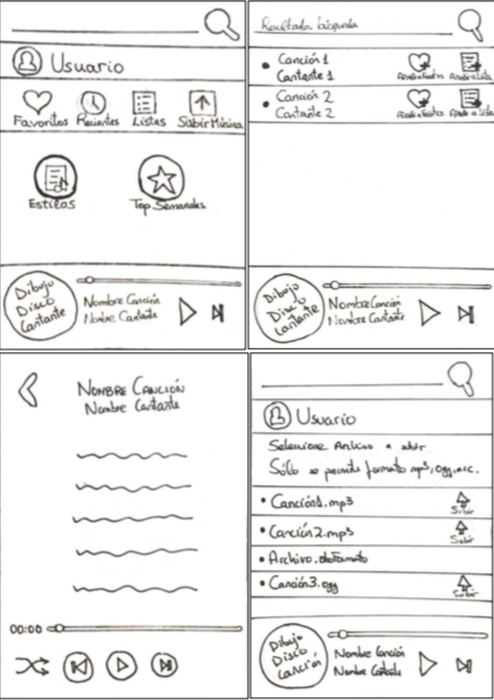 Usuario
Favoritos Recientes Listas Subir Música
Estilos Top Semanales
Dibujo
Disco
Cantante
Nombre Canción
Nombre Cantante
Resultados búsqueda
Canción 1
Cantante 1
Añadir a Favoritos Añadir a Lista
Canción 2
Cantante 2
Añadir a Favoritos Añadir a Lista
Dibujo
Disco
Cantante
Nombre Canción
Nombre Cantante
NOMBRE CANCIÓN
Nombre Cantante
00:00
Usuario
Seleccione Archivo a subir
Sólo se permite formato mp3, ogg, acc.
Canción1.mp3
Subir
Canción2.mp3
Subir
Archivo.otroformato
Canción3.ogg
Subir
Dibujo
Disco
Canción
Nombre Canción
Nombre Cantante